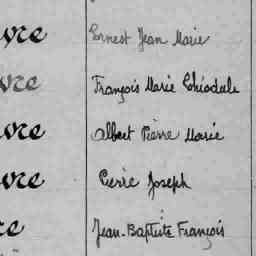 vre Ernest Jean Marie
vre François Marie Théodule
vre Albert Pierre Marie
vre Pierre Joseph
re Jean-Baptiste François